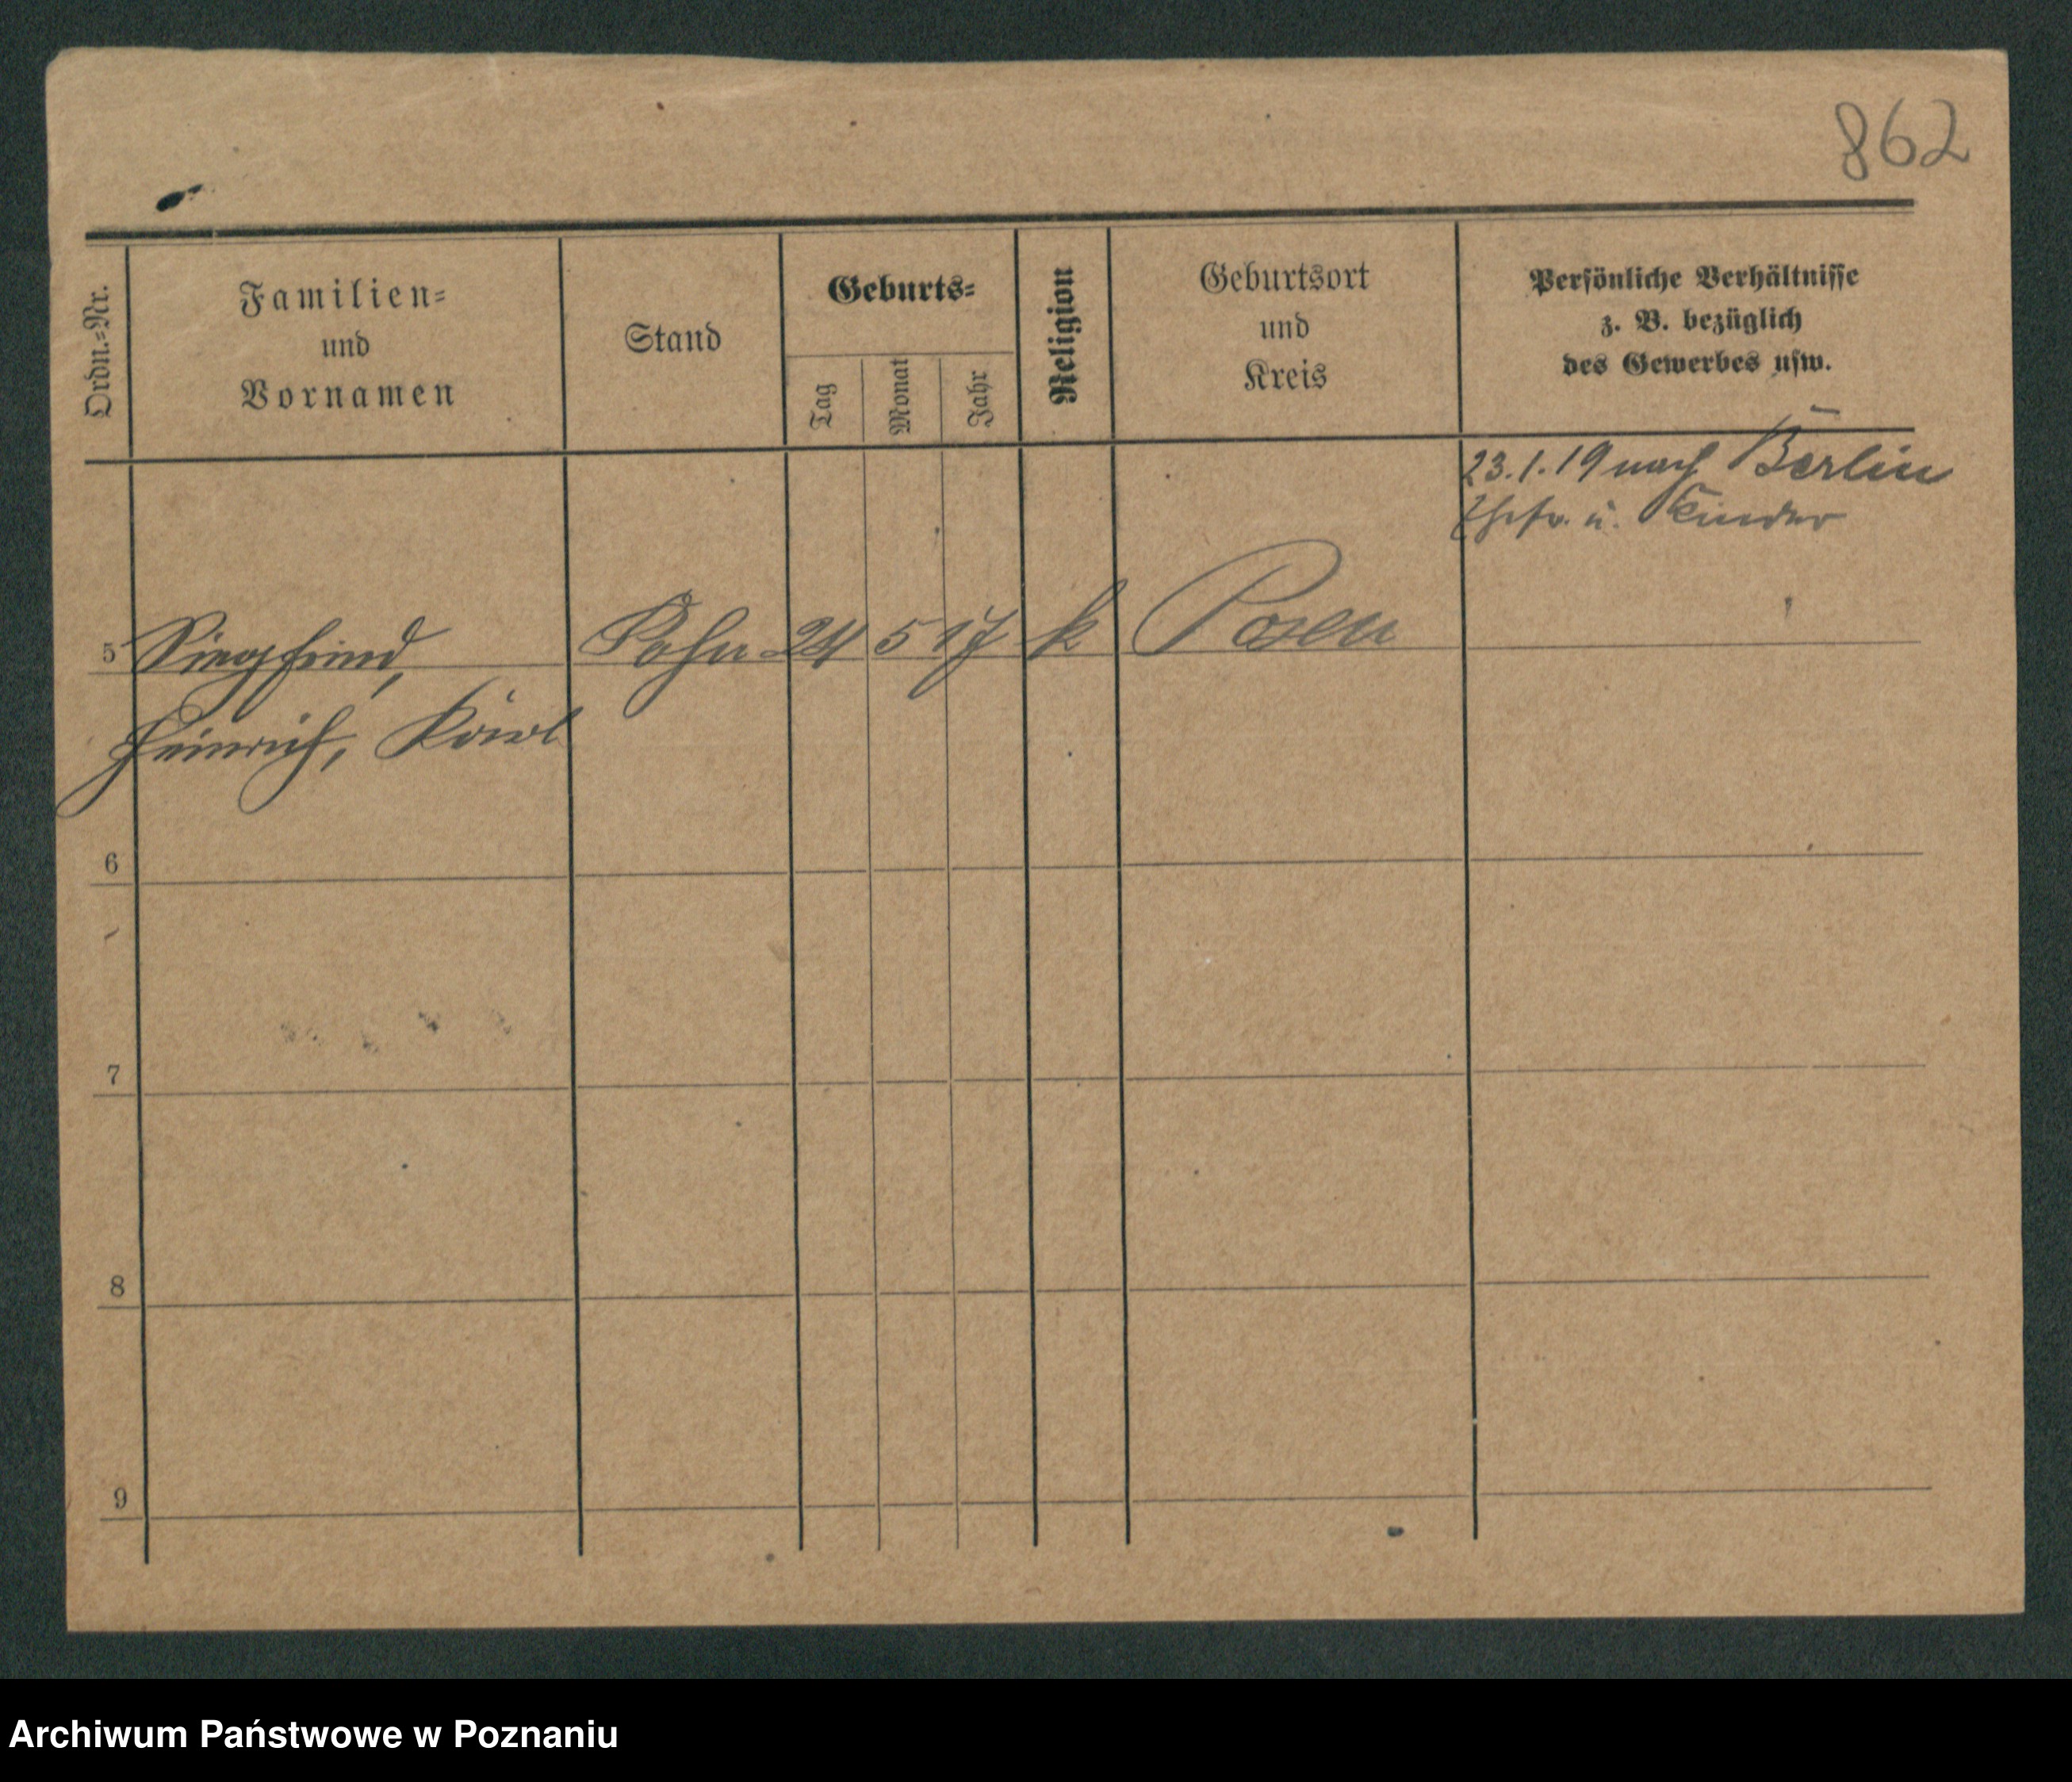 862
Ordn.=Nr.
Familien=
und
Vornamen
Stand
Geburts=
Tag
Monat
Jahr
Religion
Geburtsort
und
Kreis
Persönliche Verhältnisse
z. B. bezüglich
des Gewerbes usw.
23.1.19 nach Berlin
Ehefr. u. Kinder
5 Siegfried, Sohn 24 5 17 k Posen
Heinrich, Karl
6
7
8
9
Archiwum Państwowe w Poznaniu